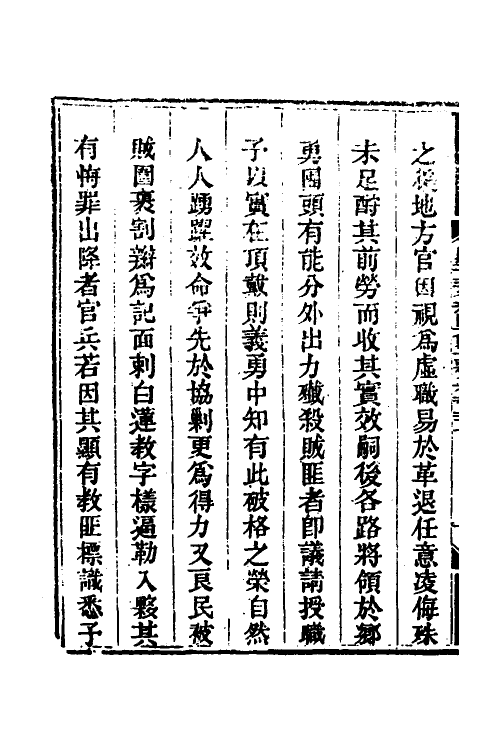 之後地方官因視爲虛職易於革退任意凌侮殊
未足酧其前勞而收其實效嗣後各路將領於鄉
勇團頭有能分外出力殲殺賊匪者卽議請授職
予以實在頂戴則義勇中知有此破格之榮自然
人人踴躍效命爭先於協剿更爲得力又良民被
賊圍裹割辮爲記面刺白蓮教字樣逼勒入夥其
有悔罪出降者官兵若因其顯有教匪標識悉予